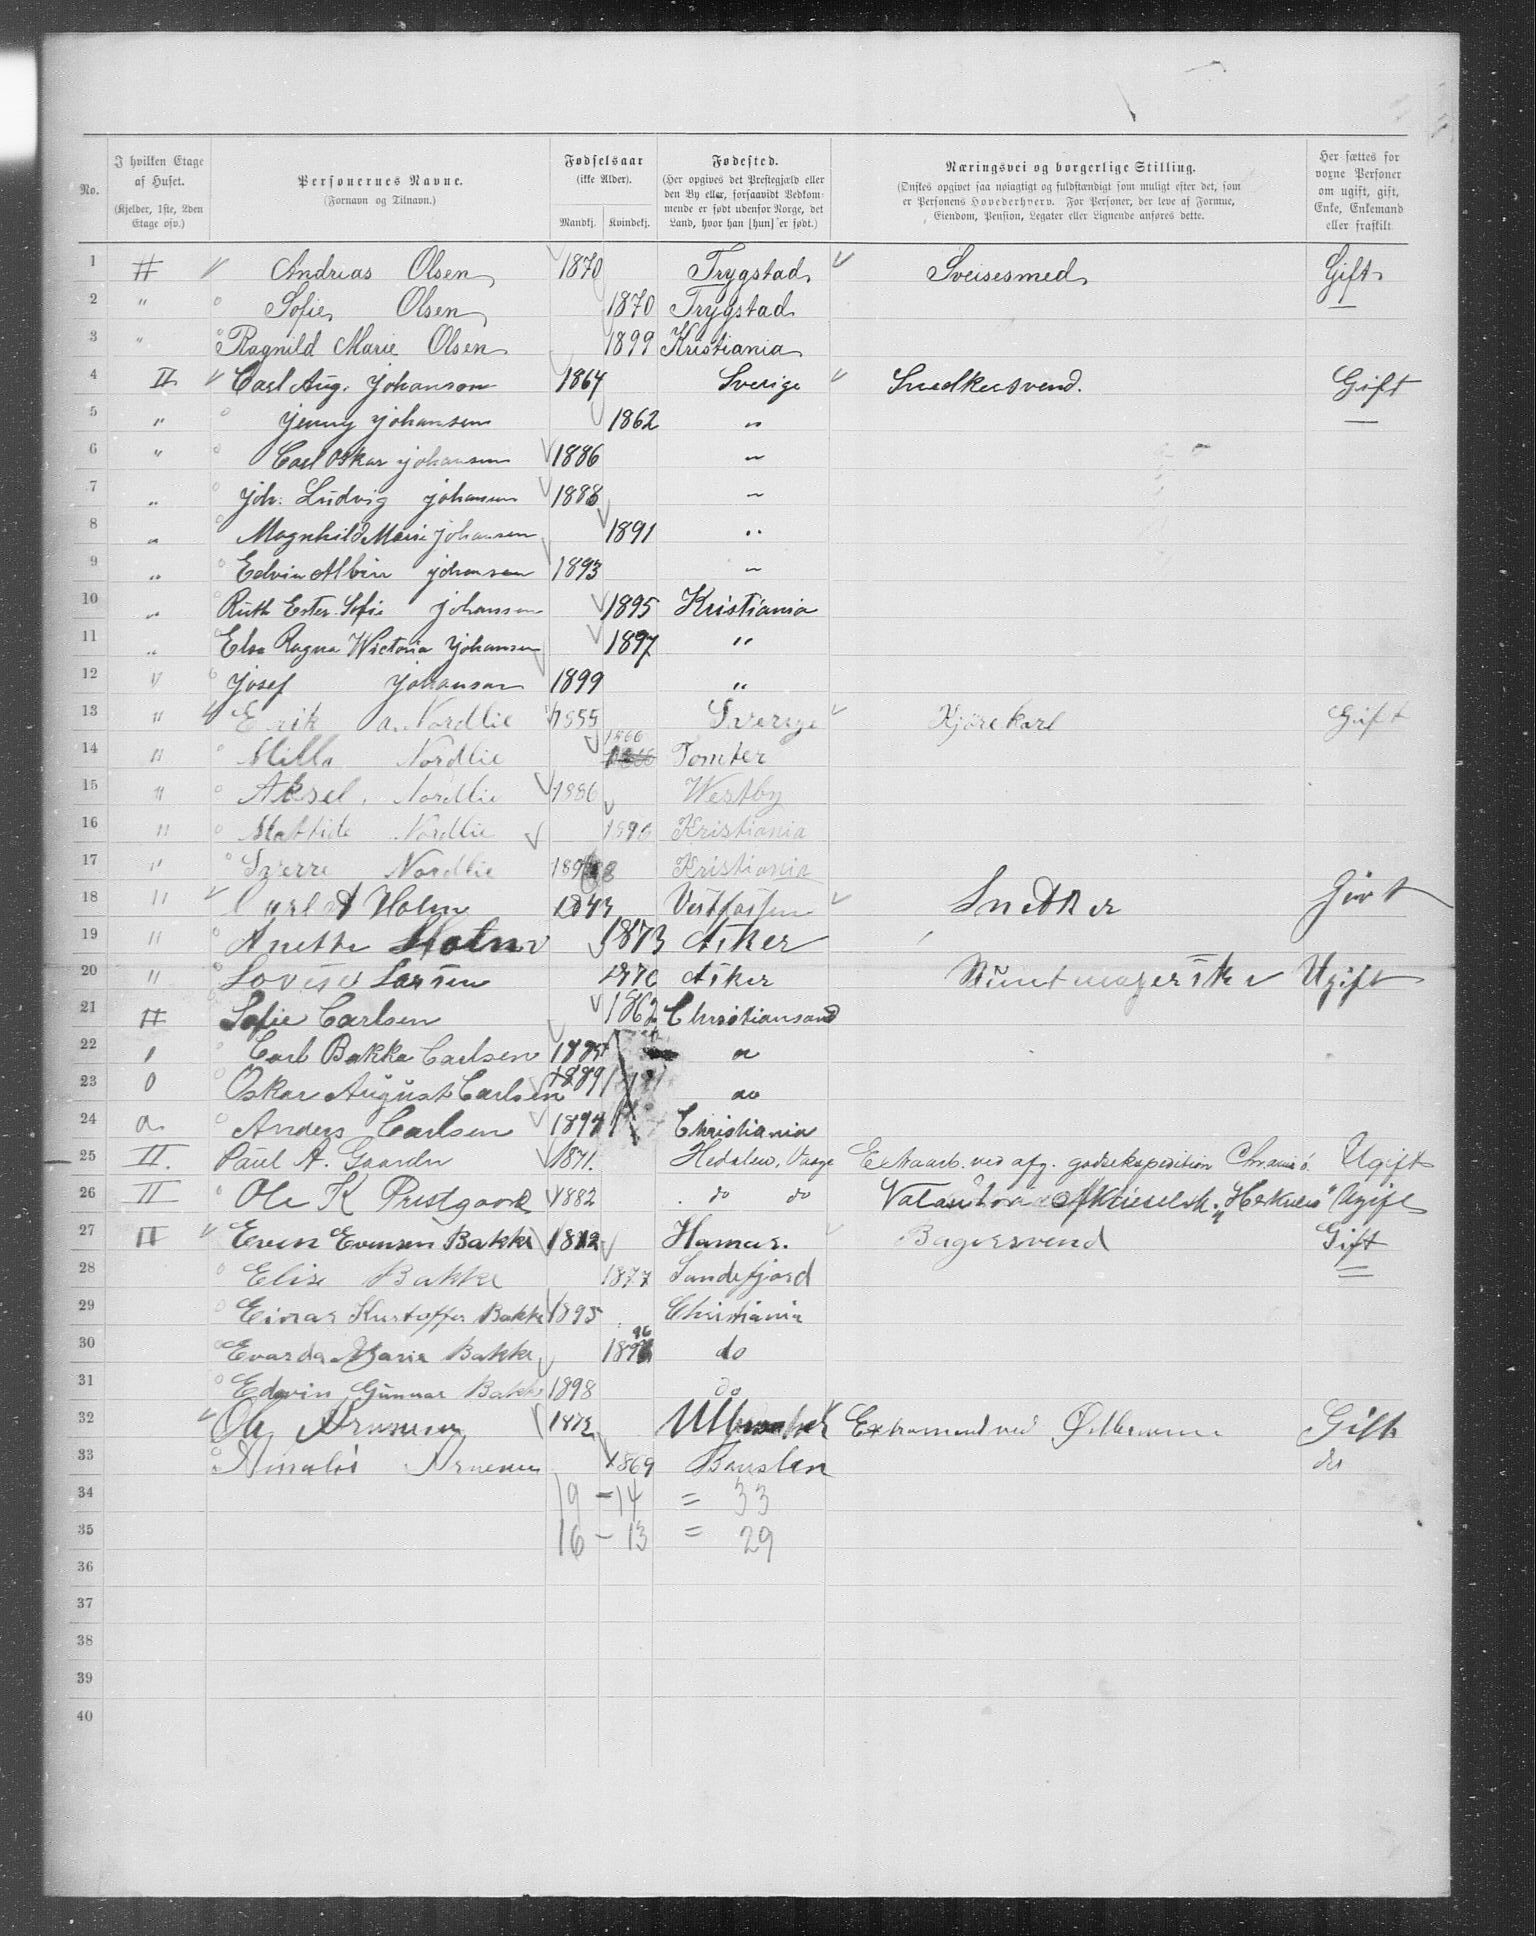 No.	I hvilken Etage af Huset. (Kjelder, 1ste, 2den Etage osv.)	Personernes Navne. (Fornavn og Tilnavn.)	Fødselsaar (ikke Alder). Mandkj. Kvindekj.	Fødested. (Her opgives det Prestegjæld eller den By eller, forsaavidt Vedkommende er født udenfor Norge, det Land, hvor han [hun] er født.)	Næringsvei og borgerlige Stilling. (Ønskes opgivet saa nøiagtigt og fuldstændigt som muligt efter det, som er Personens Hovederhverv. For Personer, der leve af Formue, Eiendom, Pension, Legater eller Lignende anføres dette.	Her sættes for voxne Personer om ugift, gift, Enke, Enkemand eller fraskilt.
1 II Andrias Olsen 1870 Trygstad Sveisesmed Gift
2 " Sofie Olsen 1870 Trygstad —
3 " Ragnild Marie Olsen 1899 Kristiania
4 II Carl Aug. Johanson 1864 Sverige Snedkersvend. Gift
5 " Jenny Johansen 1862 " —
6 " Carl Oskar Johansen 1886 "
7 " Joh. Ludvig Johansen 1888 "
8 " Magnhild Marie Johansen 1891 "
9 " Edvin Albin Johansen 1893 "
10 " Ruth Ester Sofie Johansen 1895 Kristiania
11 " Elsa Ragna Wictoria Johansen 1897 "
12 " Josef Johansen 1899 "
13 " Erik A. Nordlie 1855 Sverige Kjørekarl Gift
14 " Milla Nordlie 1866 Tomter
15 " Aksel Nordlie 1886 Westby
16 " Mattide Nordlie 1896 Kristiania
17 " Sverre Nordlie 189 Kristiania
18 " Holm 1843 Vestfossen Snedker Givt
19 " Anette Holm 1873 Asker
20 " Lovise Larsen 1870 Asker Ugift
21 II Sofie Carlsen 1862 Christiansand
22 " Carl Bakke Carlsen 1885 "
23 o Oskar August Carlsen 1889 do
24 a Anders Carlsen 1894 Christiania
25 II. Paul A. Gaarder 1871. Hedalen, Vaage Extraarb. ved afg. godsekspedition Chrania ø. Ugift
26 II Ole K Prestgard 1882 do do "Herkules" Ugift
27 II Even Evensen Bakke 1872 Hamar. Bagersvend Gift
28 Elise Bakke 1877 Sandefjord =
29 Einar Kristoffer Bakke 1895 Christiania
30 Evarda Marie Bakke 1896 do
31 Edvin Gunnar Bakke 1898 do
32 Ole Arnesen 1872 Extramand ved Gift
33 Amalie Arnesen 1869 do
34 19 – 14 = 33
35 16 – 13 = 29
36
37
38
39
40